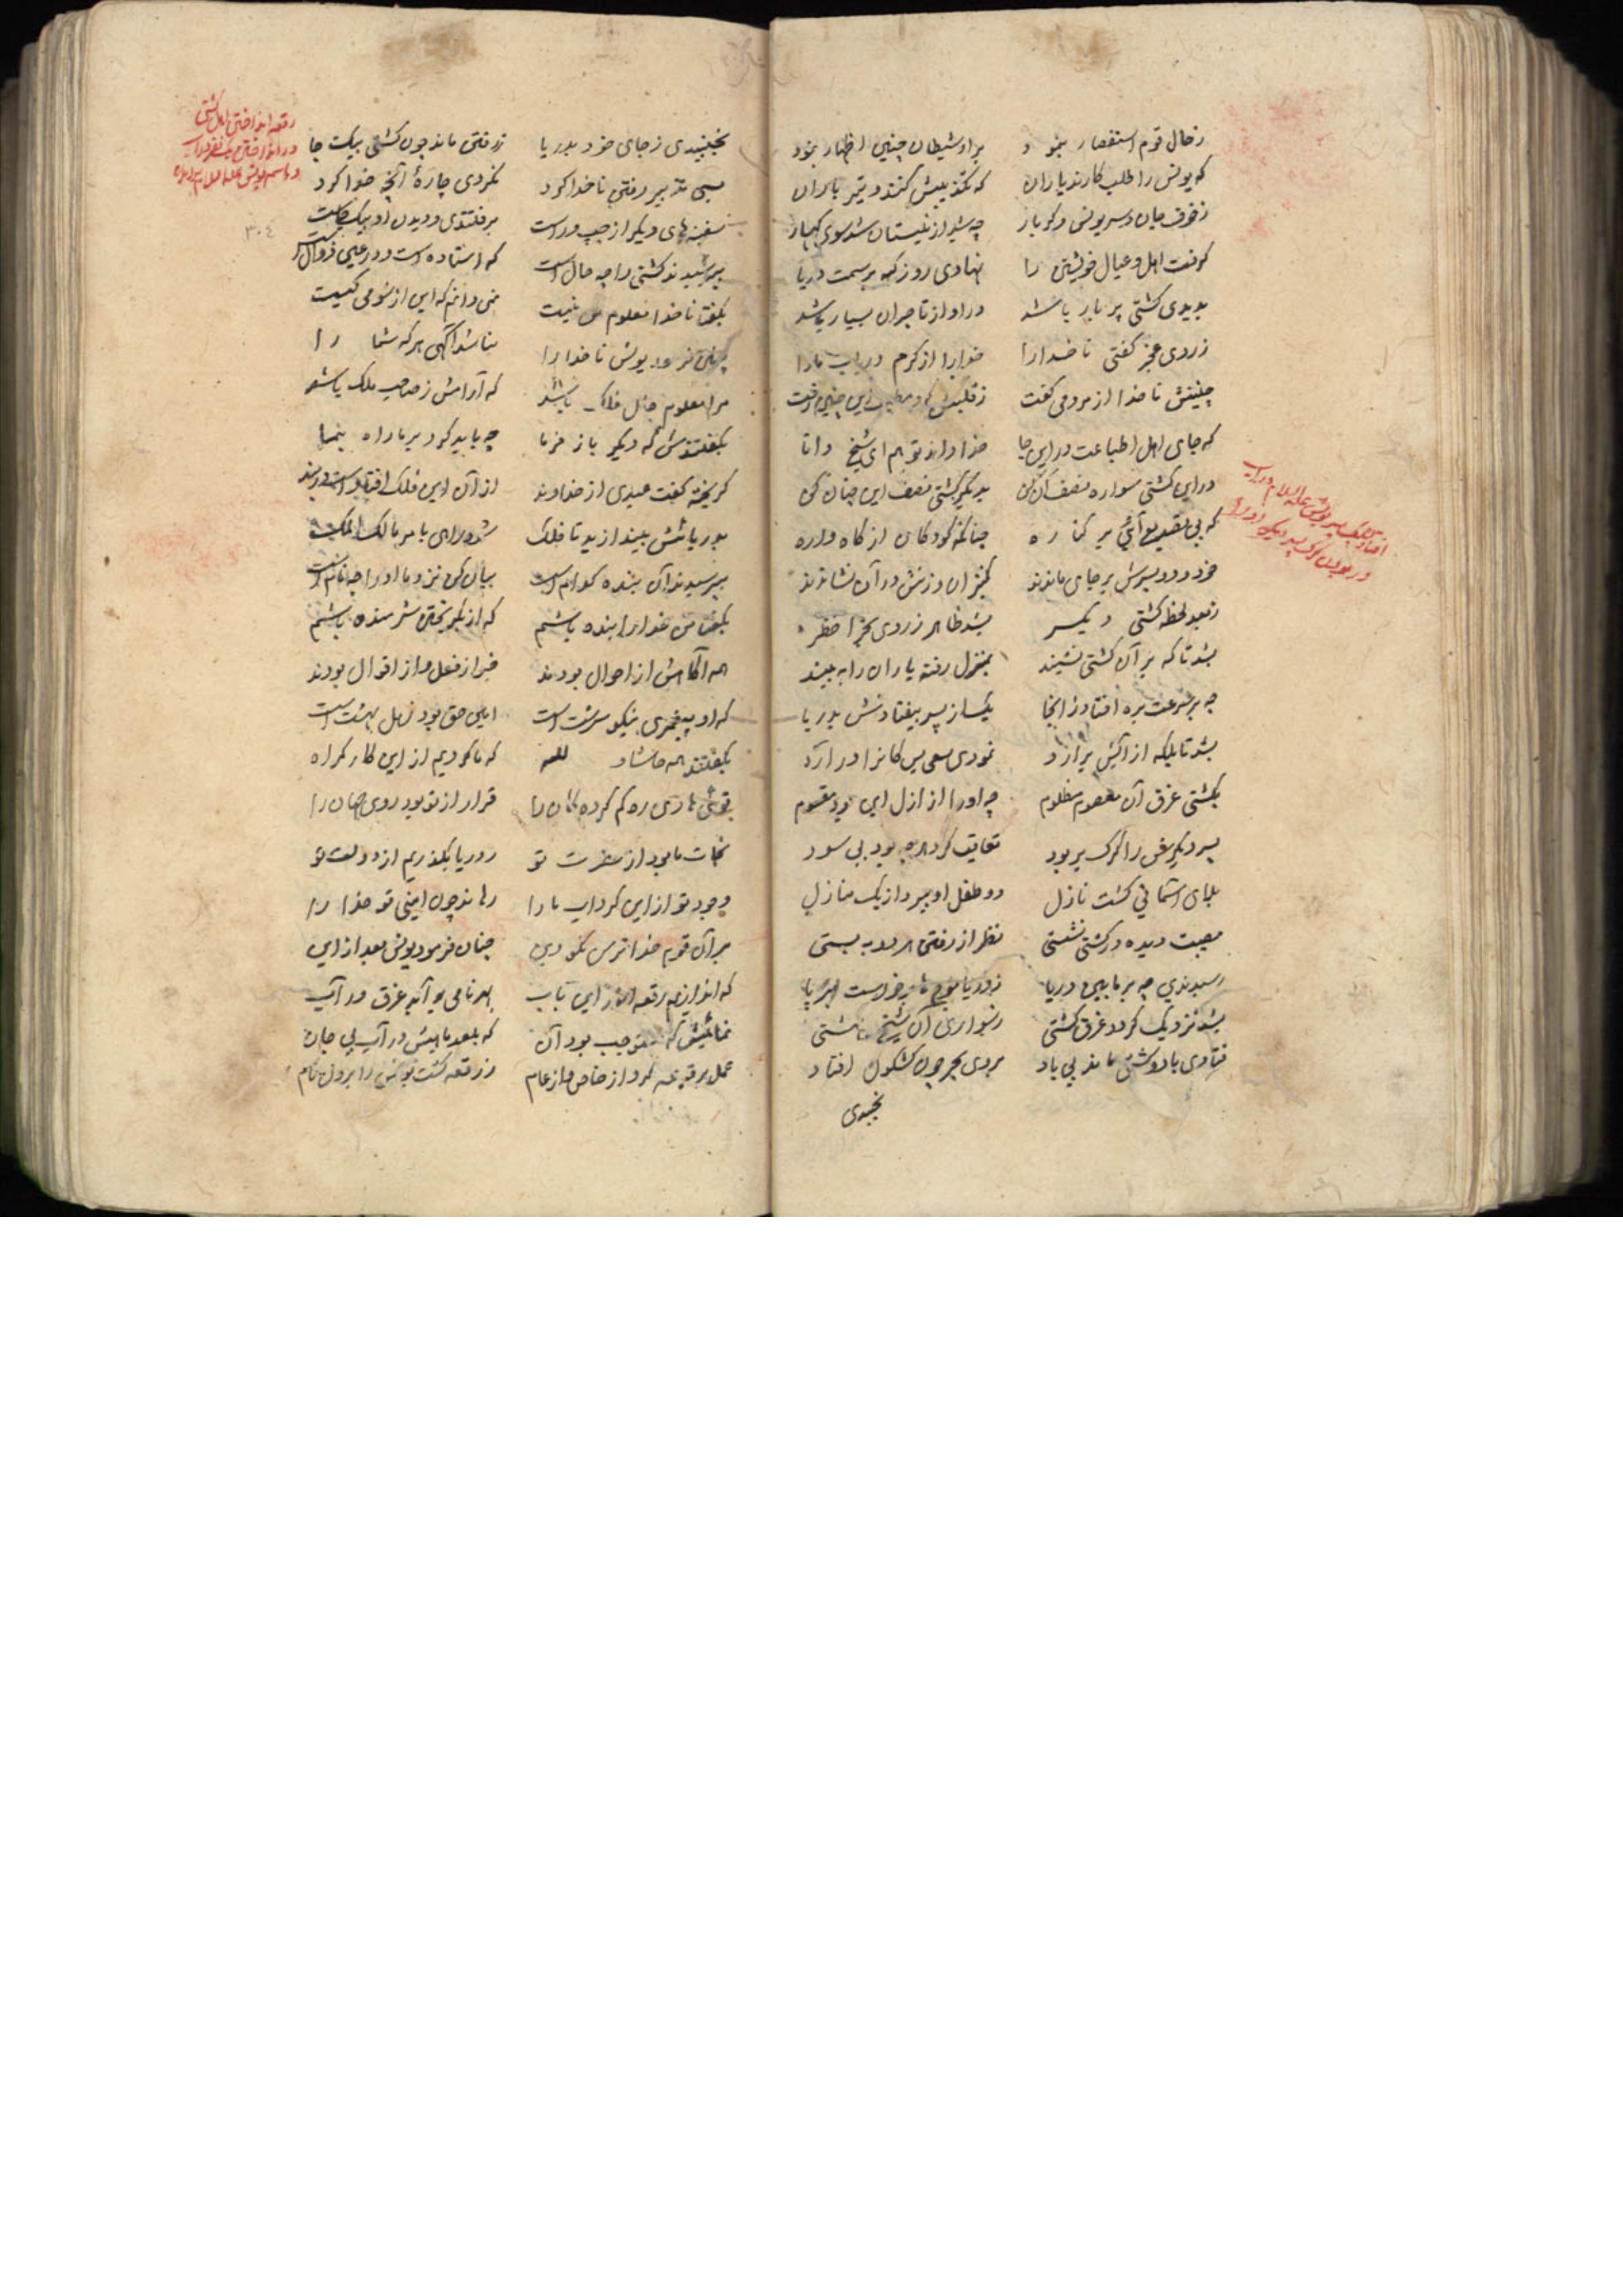 ز حال قوم استفسار بنمود
بر او شیطان چنین اظهار بنمود
که یونس را طلب کارند یاران
که تکذیبش کنند و تیر باران
ز خوف جان و سر یونس دگر بار
چه شیر از نیستان شد سوی کهسار
گرفت اهل و عیال خویشتن را
نهادی روز که بر سمت دریا
بدیدی کشتی پر بار باشد
در او از تاجران بسیار باشد
ز روی عجز گفتی ناخدا را
خدا را از کرم دریاب ما را
چنینش ناخدا از مردمی گفت
ز قلبش این چنین
که جای اهل اطباعت در این جا
خدا داند تو هم ای شیخ دانا
در این کشتی سواره نصف آن کن
بدیگر کشتی نصف این چنان کن
که بی تقصیر بر کناره
چنانکه کودکان از گاه واره
خود و دو پسرش بر جای ماندند
کنیزان و زنش در آن نشاندند
ز بعد لحظه کشتی دیگر
بشد ظاهر ز روی بحر اخضر
بشد تا که بر آن کشتی نشیند
بمنزل رفته یاران را به بیند
چه بر سرعت بره افتاد ز آنجا
یکی از پسر بیفتادش بدریا
بشد تا بلکه از آبش برآرد
نمودی سعی بس کانرا درآرد
بگشتی غرق آن معصوم مظلوم
چه او را از ازل این بود مقسوم
پسر دیگرش را گرگ بربود
تعاقب کرد بود بی سود
بلای آسمانی گشت نازل
دو طفل او ببرد از یک منازل
مصیبت دیده در کشتی نشستی
نظر از رفتن هر دو به بستی
رسیدندی چه بر مابین دریا
ز دریا موج ها برخواست
بشد نزدیک گردد غرق کشتی
ز سواری آن شیخ
فتادی بادوکشتی ماند بی باد
بروی بحر چون کشکول افتاد
نجنبیدی
افتادن یک پسر یونس علیه السلام در آب
در بودن گرگ پسر دیگر او را
نجنبیدی ز جای خود بدریا
ز رفتن ماند چون کشتی بیک جا
بسی تدبیر رفتن ناخدا کرد
نکردی چاره آنچه خدا کرد
سفینه های دیگر از چپ و راست
برفتندی و دیدن او
بپرسیدند کشتی را چه حال است
که استاده است و در عین زوال است
بگفتا ناخدا معلوم من نیست
نمی دانم که این از شومی کیست
یونس ناخدا را
نباشد آگهی هر که شما را
مرا معلوم حال فلک باشد
که آرامش ز صاحب ملک باشد
بگفتندش که دیگر باز فرما
چه باید کرد بر ما راه بنما
گریخته گفت عبدی از خداوند
از آن این فلک افتاد است در بند
بدریائش بیندازید تا فلک
شود راهی با مر مالک الملک
بپرسیدند آن بنده کدام است
بیان کن نزد ما او را چه نام است
بگفتا من خدا را بنده باشم
که از بگریختن شرمنده باشم
همه آگاهش از احوال بودند
خبر از فعل و از اقوال بودند
که او پیغمبری نیکو سرشت است
امین حق بود ز اهل بهشت است
بگفتند همه حاشاد لله
که ما کردیم از این کار گمراه
توئی هادی ره گم کرده گان را
قرار از تو بود روی جهان را
نجات ما بود از حضرت تو
ز دریا بگذریم از دولت تو
وجود تو از این گرداب ما را
رهاند چون امینی تو خدا را
بر آن قوم خدا ترس نکو دین
چنان فرمود یونس بعد از این
که اندازیم رقعه این باب
بهر نامی بر آید غرق در آب
نمائیمش که موجب بود آن
که بلعد ماهیش در آب بی جان
عمل بر قرعه کرد از خاص و از عام
ز رقعه گشت یونس را برون نام
رقعه انداختن اهل کشتی
در انداختن یک نفر در آب
و باسم یونس علیه السلام
۳۰٤